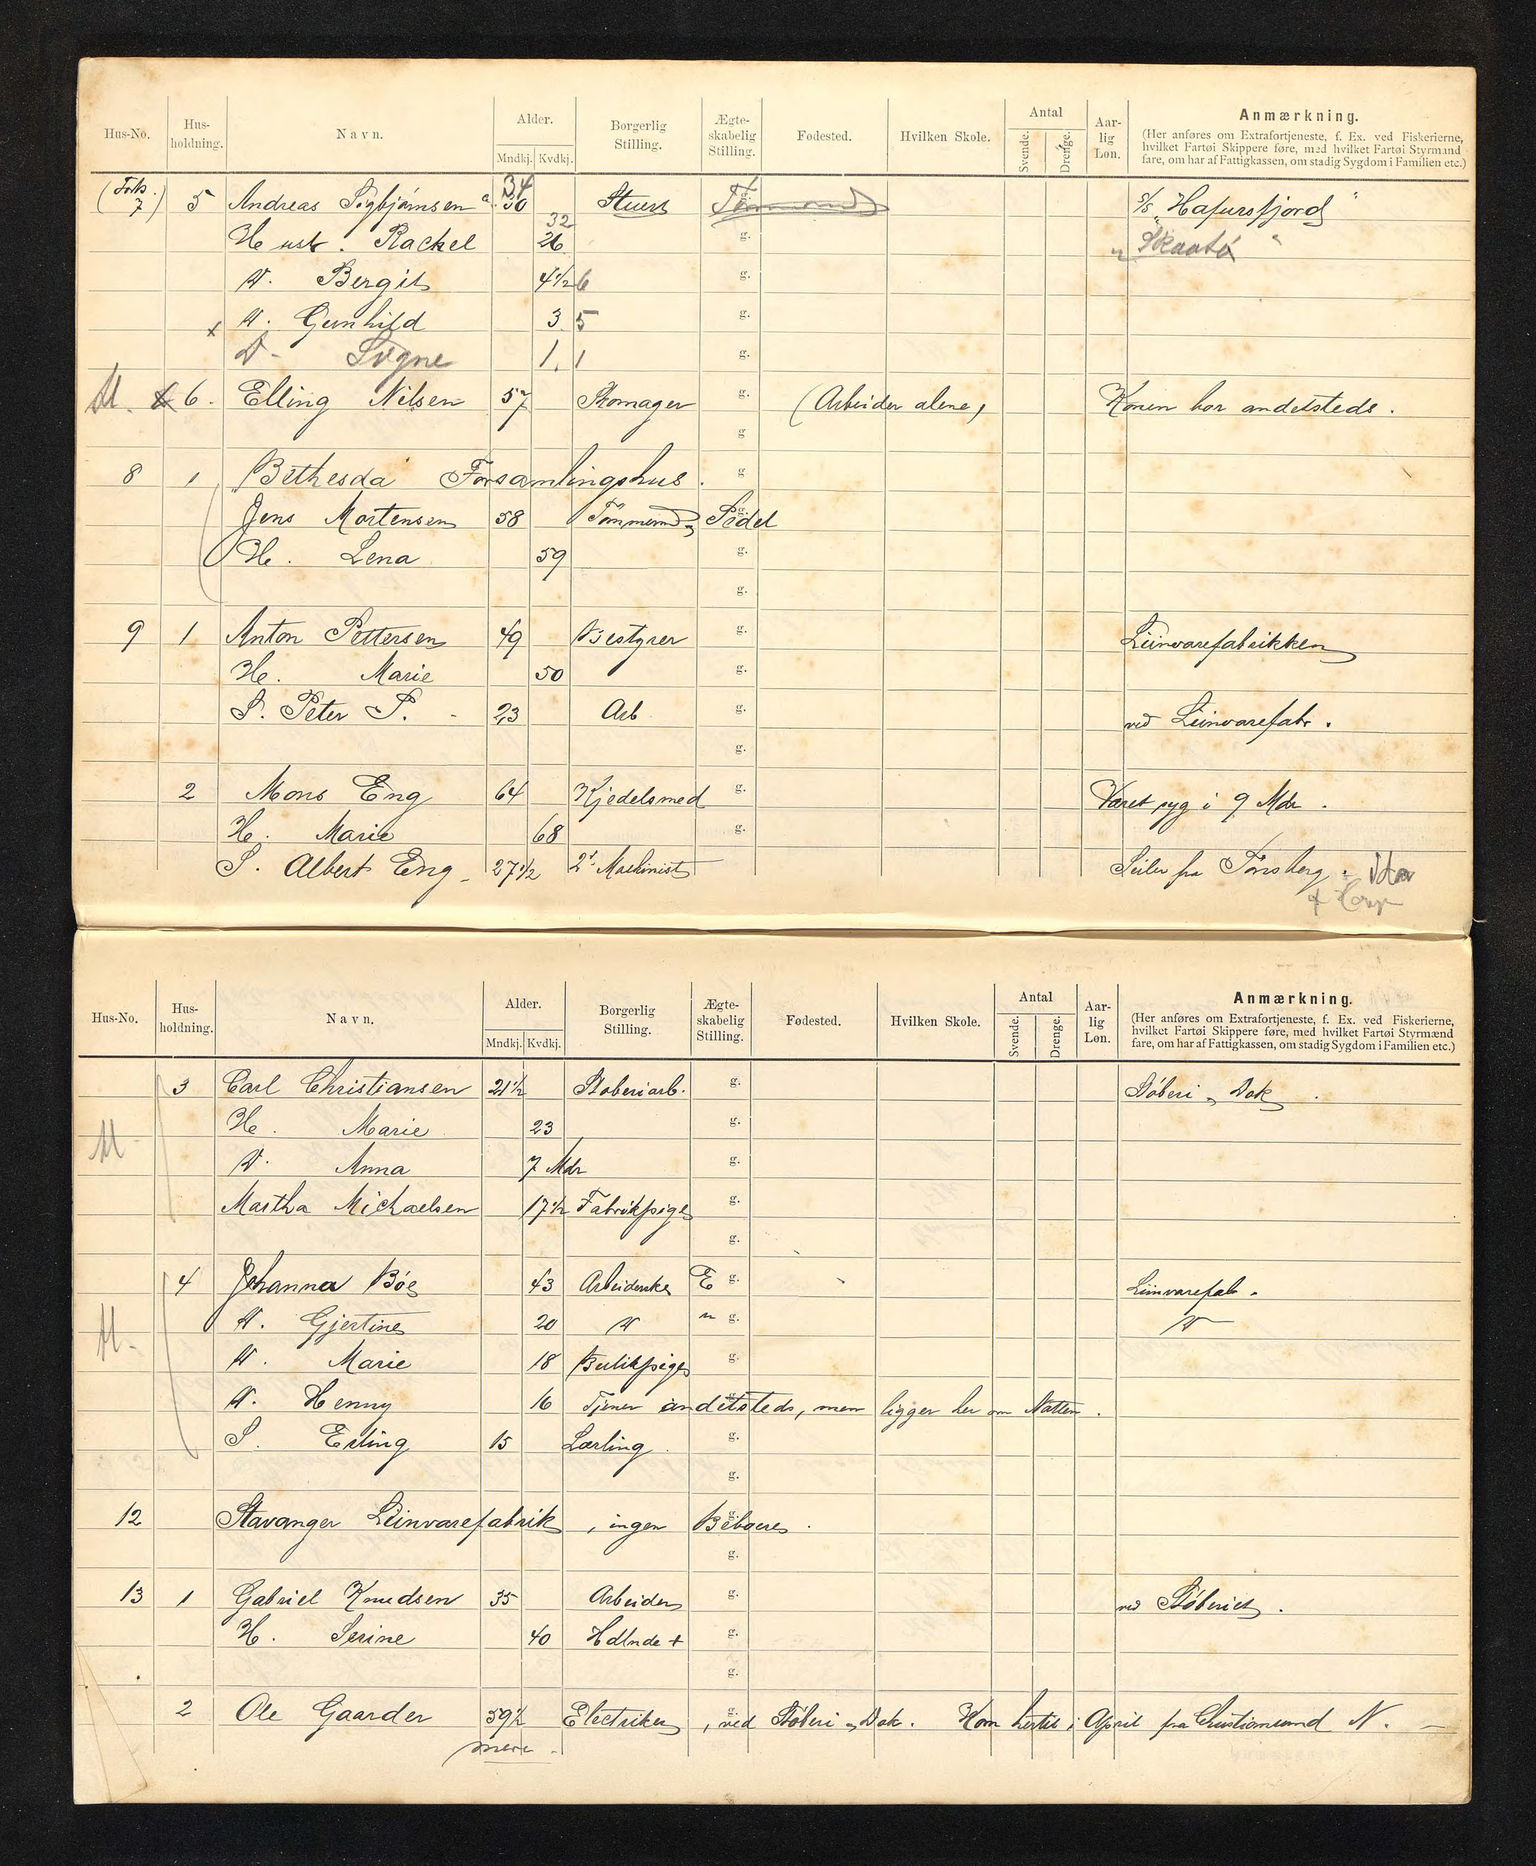 Hus-No. Hus-holdning. Navn. Alder. Mndkj. Kvdkj. Borgerlig Stilling. Ægte-skabelig Stilling. Fødested. Hvilken Skole. Antal Svende. Drenge. Aar-lig Løn. Anmærkning.
(Her anføres om Extrafortjeneste, f. Ex. ved Fiskerierne,
hvilket Fartøi Skippere føre, med hvilket Fartøi Styrmænd
fare, om har af Fattigkassen, om stadig Sygdom i Familien etc.)
(Forts. 7) 5 Andreas Sigbjørnsen 34 30 Stuert g. S/S "Hafursfjord"
Hust. Rackel 32 26 g. "Skaatø"
D. Bergit 4½ 6 g.
x D. Gunhild 3 5 g.
D. Signe 1. 1 g.
M. 6. Elling Nilsen 57 Skomager g. (Arbeider alene) Konen bor andetsteds.
g.
8 1 "Bethesda" Forsamlingshus. g.
Jens Mortensen 58 Tømmermd g.
H. Lena 59 g.
g.
9 1 Anton Pettersen 49 Bestyrer g. Liinvarefabrikken
H. Marie 50 g.
S. Peter P. 23 Arb g. ved Liinvarefabr.
g.
2 Mons Eng 64 Kjedelsmed g. Været syg i 9 Mdr.
H. Marie 68 g.
S. Albert Eng 27½ 2' Maskinist Seiler fra Tønsberg.
Hus-No. Hus-holdning. Navn. Alder. Mndkj. Kvdkj. Borgerlig Stilling. Ægte-skabelig Stilling. Fødested. Hvilken Skole. Antal Svende. Drenge. Aar-lig Løn. Anmærkning.
(Her anføres om Extrafortjeneste, f. Ex. ved Fiskerierne,
hvilket Fartøi Skippere føre, med hvilket Fartøi Styrmænd
fare, om har af Fattigkassen, om stadig Sygdom i Familien etc.)
3 Carl Christiansen 21½ Støberiarb. g. Støberi & Dok.
H. Marie 23 g.
M D. Anna 7 Mdr g.
Martha Michaelsen 17½ Fabrikpige g.
g.
4 Johanna Bøe 43 Arbeiderske E g. Liinvarefab.
D. Gjertine 20 D " g. D
M. D. Marie 18 Butikpige g.
D. Henny 16 Tjener andetsteds, men ligger her om Natten.
S. Erling 15 Lærling g.
g.
12 Stavanger Liinvarefabrik, ingen Beboere.
g.
13 1 Gabriel Knudsen 35 Arbeider g. ved Støberiet.
H. Serine 40 Hdlnde + g.
g.
2 Ole Gaarder 39½ Electriker, ved Støberi & Dok. Kom hertil i April fra Christiansund N.
mere